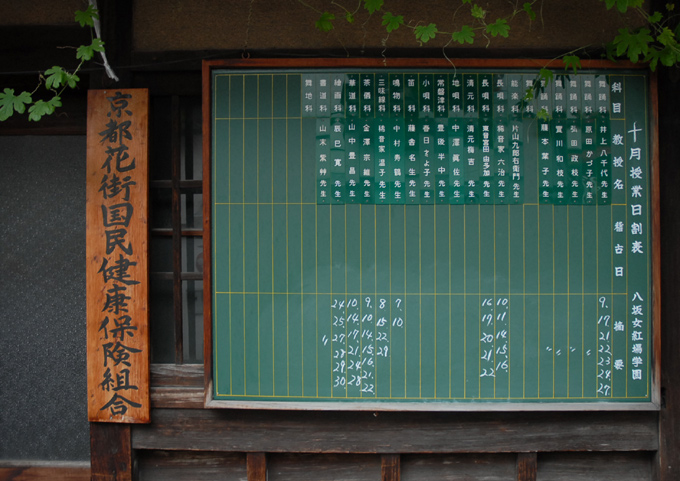 十月授業日割表 八坂女紅場学園
科目 教授名 稽古日 摘要
舞踊科 井上八千代先生 9. 17. 21 22 23 24 27.
舞踊科 原田かづ子先生 〃
舞踊科 弘田政枝先生 〃
舞踊科 實川和枝先生 〃
舞踊科 藤本葉子先生
舞踊科
能楽科 片山九郎右衛門先生
長唄科 稀音家六治先生 10. 11. 14. 15. 16.
長唄科 東音富田由多加先生 16 19. 20. 21. 22
清元科 清元梅吉先生
地唄科 中澤眞佐先生
常磐津科 豊後半中先生
小唄科 春日とよ子先生
笛科 藤舎名生先生
鳴物科 中村寿鶴先生 7. 10.
三味線科 稀音家温子先生 8 15 22 29
茶儀科 金澤宗維先生 9. 10. 14. 15. 16. 21. 22.
華道科 山中豊昌先生 10. 14. 17. 21. 24 28
絵画科 萩巴寛先生 24. 25. 27. 28 29 30
書道科 山本紫舟先生 4
舞地科
京都花街国民健康保険組合